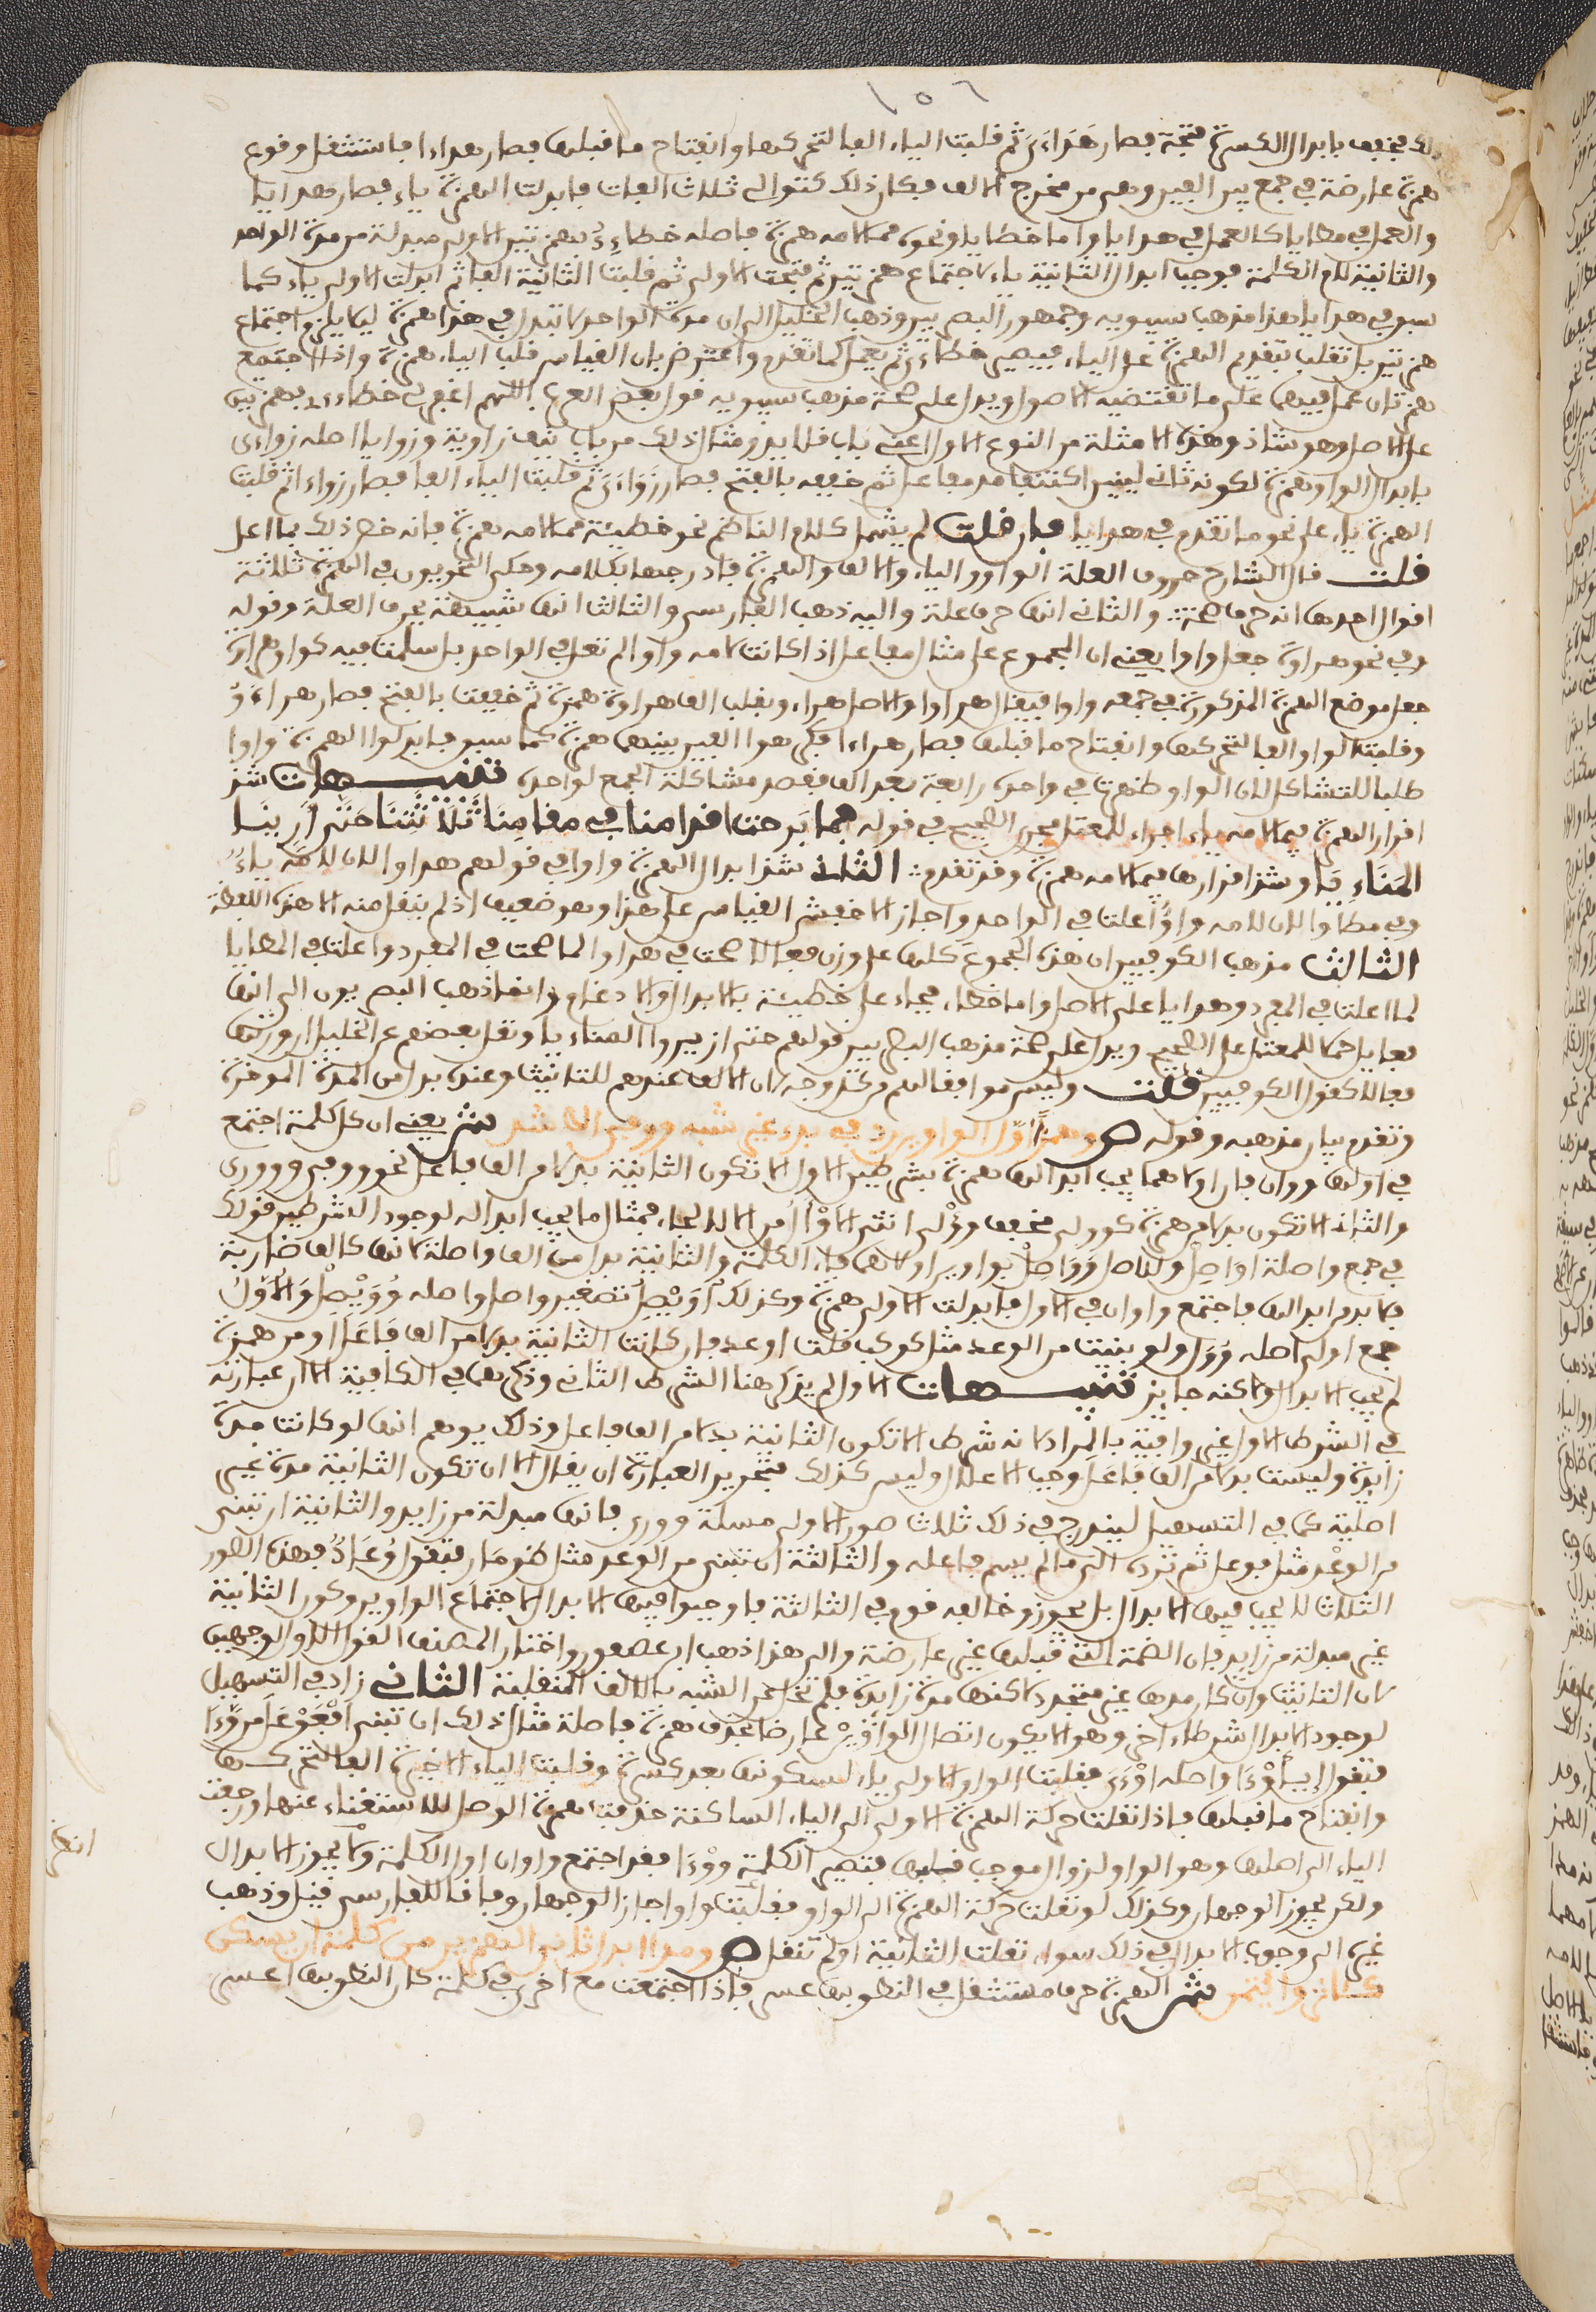 ١٥٦
ذلك فخفف بابدال الكسرة فتحة فصار هَدَاءَيَ ثم قلبت الياء الفا لتحركها وانفتاح ما قبلها فصار هداءا فاستثقل وقوع
همزة عارضة في جمع بين الفين وهي من مخرج الالف فكان ذلك كتوالي ثلاث الفات فابدلت الهمزة ياء فصار هدايا
والعمل في مطايا كالعمل في هدايا واما خطايا ونحوه مما لامه همزة فاصله خطاءِءُ بهمزتين الاولى مبدلة من مدة الواحد
والثانية لام الكلمة فوجب ابدال الثانية ياء لاجتماع همزتين ثم فتحت الاولى ثم قلبت الثانية الفا ثم ابدلت الاولى ياء كما
سبق في هدايا هذا مذهب سيبويه وجمهور البصريين وذهب الخليل الى ان مدة الواحد لا تبدل في هذا همزة ليلا يلزم اجتماع
همزتين بل تقلب بتقديم الهمزة على الياء فيصير خطاءِيُ ثم يعمل كما تقدم واعترض بان القياس قلب الياء همزة واذا اجتمع
همزتان عمل فيهما على ما تقتضيه الاصول ويدل على صحة مذهب سيبويه قول بعض العرب اللهم اغفر لي خطاءءي بهمزتين
على الاصل وهو شاذ وهذه الامثلة من النوع الاول اعني باب قلايد ومثال ذلك من باب نيف زاوية وزوايا اصله زواءي
بابدال الواو همزة لكونه ثاني لينين اكتنفا مد مفاعل ثم خفف بالفتح فصار زَوَاءَيَ ثم قلبت الياء الفا فصار زواءا ثم قلبت
الهمزة ياء على نحو ما تقدم في هدايا فان قلت لم يشمل كلام الناظم نحو خطيئة مما لامه همزة فانه خص ذلك بما اعل
قلت قال الشارح حروف العلة الواو والياء والالف والهمزة فادرجها بكلامه وحكى النحويون في الهمزة ثلاثة
اقوال احدها انه حرف صحة والثاني انها حرف علة واليه ذهب الفارسي والثالث انها شبيهة بحرف العلة وقوله
وفي نحو هراوة جعل واوا يعني ان المجموع على مثال مفاعل اذا كانت لامه واوا لم تعل في الواحد بل سلمت فيه كواو هراوة
جعل موضع الهمزة المذكورة في جمعه واوا فيقال هراوا والاصل هراء وبقلب الف هراوة همزة ثم خففت بالفتح فصار هراءَوُ
وقلبت الواو الفا لتحركها وانفتاح ما قبلها فصار هراءا فكرهوا الفين بينهما همزة كما سبق فابدلوا الهمزة واوا
طلبا للتشاكل لان الواو ظهرت في واحده رابعة بعد الف فقصد مشاكلة الجمع لواحده تنبيهات شذ
اقرار الهمزة فيما لامه ياء اجراء للمعتل مجرى الصحيح في قوله فما بَرحت اقدامنا في مقامِنَا ثَلَاثَتنَا حَتَّى أُزِيرَا
المَنَائِيَا وشذ اقرارها فيما لامه همزة وقد تقدم الثاني شذ ابدال الهمزة واوا في قولهم هداوا لان لامَهُ ياءٌ
وفي مطاوا لان لامه واوٌ اعلت في الواحد واجاز الاخفش القياس على هذا وهو ضعيف اذ لم ينقل منه الا هذه اللفظة
الثالث مذهب الكوفيين ان هذه الجموعَ كلها على وزن فعالا صحت في هراوا لما صحت في المفرد واعلت في المطايا
لما اعلت في المفرد وهدايا على الاصل واما خطاء فجاء على خطيئة بالابدال والادغام وانما ذهب البصريون الى انها
فعايل حملا للمعتل على الصحيح ويدل على صحة مذهب البصريين قولهم حتى ازيروا المناءيا ونقل بعضهم عن الخليل ان وزنها
فعالا كقول الكوفيين قلت وليس موافقا لهم من كل وجه لان الالف عندهم للتانيث وعنده بدل من المدة الموخرة
وتقدم بيان مذهبه وقوله ص وهمزًا اوّل الواوين رد في بدء غير شبه ووفي الاشد ش يعني ان كل كلمة اجتمع
في اولها وَوان فان اولاهما يجب ابدالها همزة بشرطين الاول الا تكون الثانية بدلا من الف فاعل نحو ووفي وووري
والثاني الا تكون بدلا من همزة كوولى مخفف وؤلى انثى الاوْأل من الا لجاء فمثال ما يجب ابداله لوجود الشرطين قولك
في جمع واصلة اواصل والاصل وَوَاصِلُ بواوين اولاهما فاء الكلمة والثانية بدل من الف واصلة لانها كالف ضاربة
فلا بد من ابدالها فاجتمع واوان في الاول فابدلت الاولى همزة وكذلك أُوَيْصِل تصغير واصل واصله وُوَيْصِل وَالأُوَلُ
جمع اولى اصله وُوَل ولو بنيت من الوعد مثل كوكب قلت اوعد فان كانت الثانية بدلا من الف فَاعَلَ او من همزة
لم يجب الابدال ولكنه جايز تنبيهات الاول لم يذكر هنا الشرط الثاني وذكرهما في الكافية الا ان عبارته
في الشرط الاول غير وافية بالمراد لانه شرط الا تكون الثانية بدلا من الف فاعل وذلك يوهم انها لو كانت مدة
زايدة وليست بدلا من الف فَاعَل وجب الاعلال وليس كذلك فتحرير العبارة ان يقال الا ان تكون الثانية مدة غير
اصلية كما في التسهيل ليندرج في ذلك ثلاث صور الاولى مسالة ووري فانها مبدلة من زايد والثانية ان تبنى
من الوعْد مثل فوعل ثم ترده الى ما لم يسم فاعله والثالثة ان تبنى من الوعد مثل طومار فتقول وُعَادٌ فهذه الصور
الثلاث لا يجب فيها الابدال بل يجوز وخالف قوم في الثالثة فاوجبوا فيها الابدال لاجتماع الواوين وكون الثانية
غير مبدلة من زايد فان الضمة التي قبلها غير عارضة والى هذا ذهب ابن عصفور واختار المصنف القول الاول وجهين
لان الثانية وان كان مدها غير متجدد لكنها مدة زايدة فلم تخل عن الشبه بالالف المنقلبة الثاني زاد في التسهيل
لوجود الابدال شرطا اخر وهو الا يكون اتصال الواوَيْن عارضا بحذف همزة فاصلة مثال ذلك ان تبنى افْعَوْعَل من وَّءَا
فتقول ايـأوْءَا واصله اوْءَوْءَيَ فقلبت الواو الاولى ياء لسكونها بعد كسرة وقلبت الياء الاخيرة الفا لتحركها
وانفتاح ما قبلها فاذا نقلت حركة الهمزة الاولى الى الياء الساكنة حذفت همزة الوصل للاستغناء عنها ورجعت
الياء الى اصلها وهو الواو لزوال موجب قلبها فتصير الكلمة ووْءَا فقد اجتمع واوان اول الكلمة ولا يجوز الابدال
ولكن يجوز الوجهان وكذلك لو نقلت حركة الهمزة الى الواو فقلبت واوا جاز الوجهان وفاقا للفارسي قيل وذهب
غيره الى وجوب الابدال في ذلك سواء نقلت الثانية او لم تنقل ص ومدا ابدل ثاني الهمزين من كلمة ان يسكن
كـاثر وايتمن ش الهمزة حرف مستثقل في النطق بها عسر فاذا اجتمعت مع اخرى في كلمة كان النطق بها اعسر
انظر